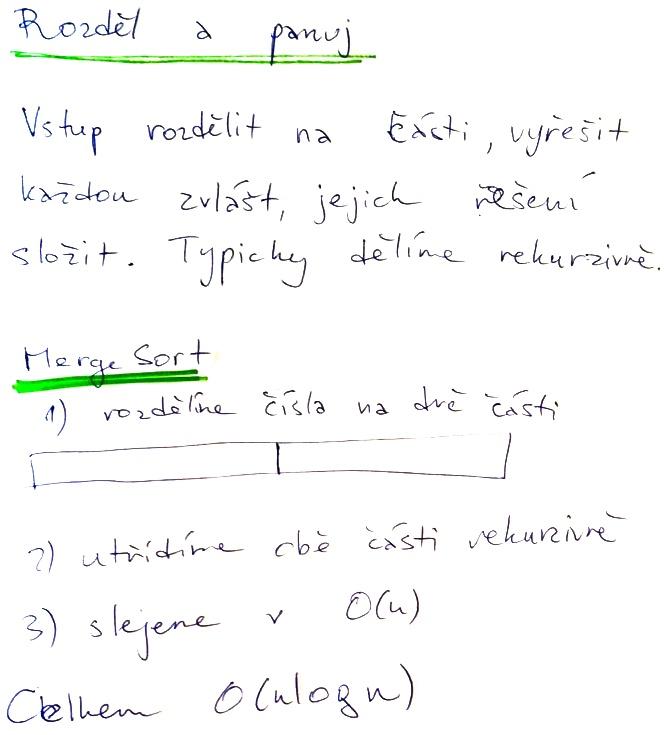 Rozděl a panuj
Vstup rozdělit na části, vyřešit
každou zvlášt, jejich řešení
složit. Typicky dělíme rekurzivně.
Merge Sort
1) rozdělíme čísla na dvě části
2) utřídíme obě části rekurzivně
3) slejeme v O(n)
Celkem O(n log n)